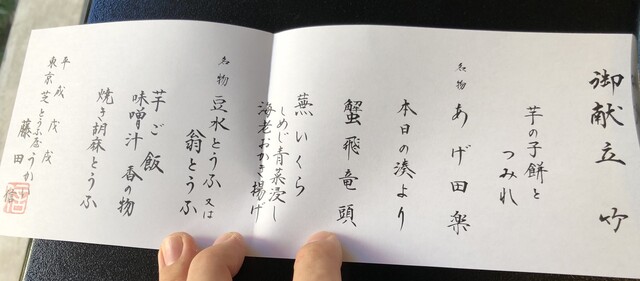 御献立 竹
芋の子餅と
つみれ
名物 あげ田楽
本日の湊より
蟹飛竜頭
蕪いくら
しめじ青菜浸し
海老おかき揚げ
名物 豆水とうふ 又は
翁とうふ
芋ご飯
味噌汁 香の物
焼き胡麻とうふ
平成戊戌
東京芝とうふ屋うかい
藤田